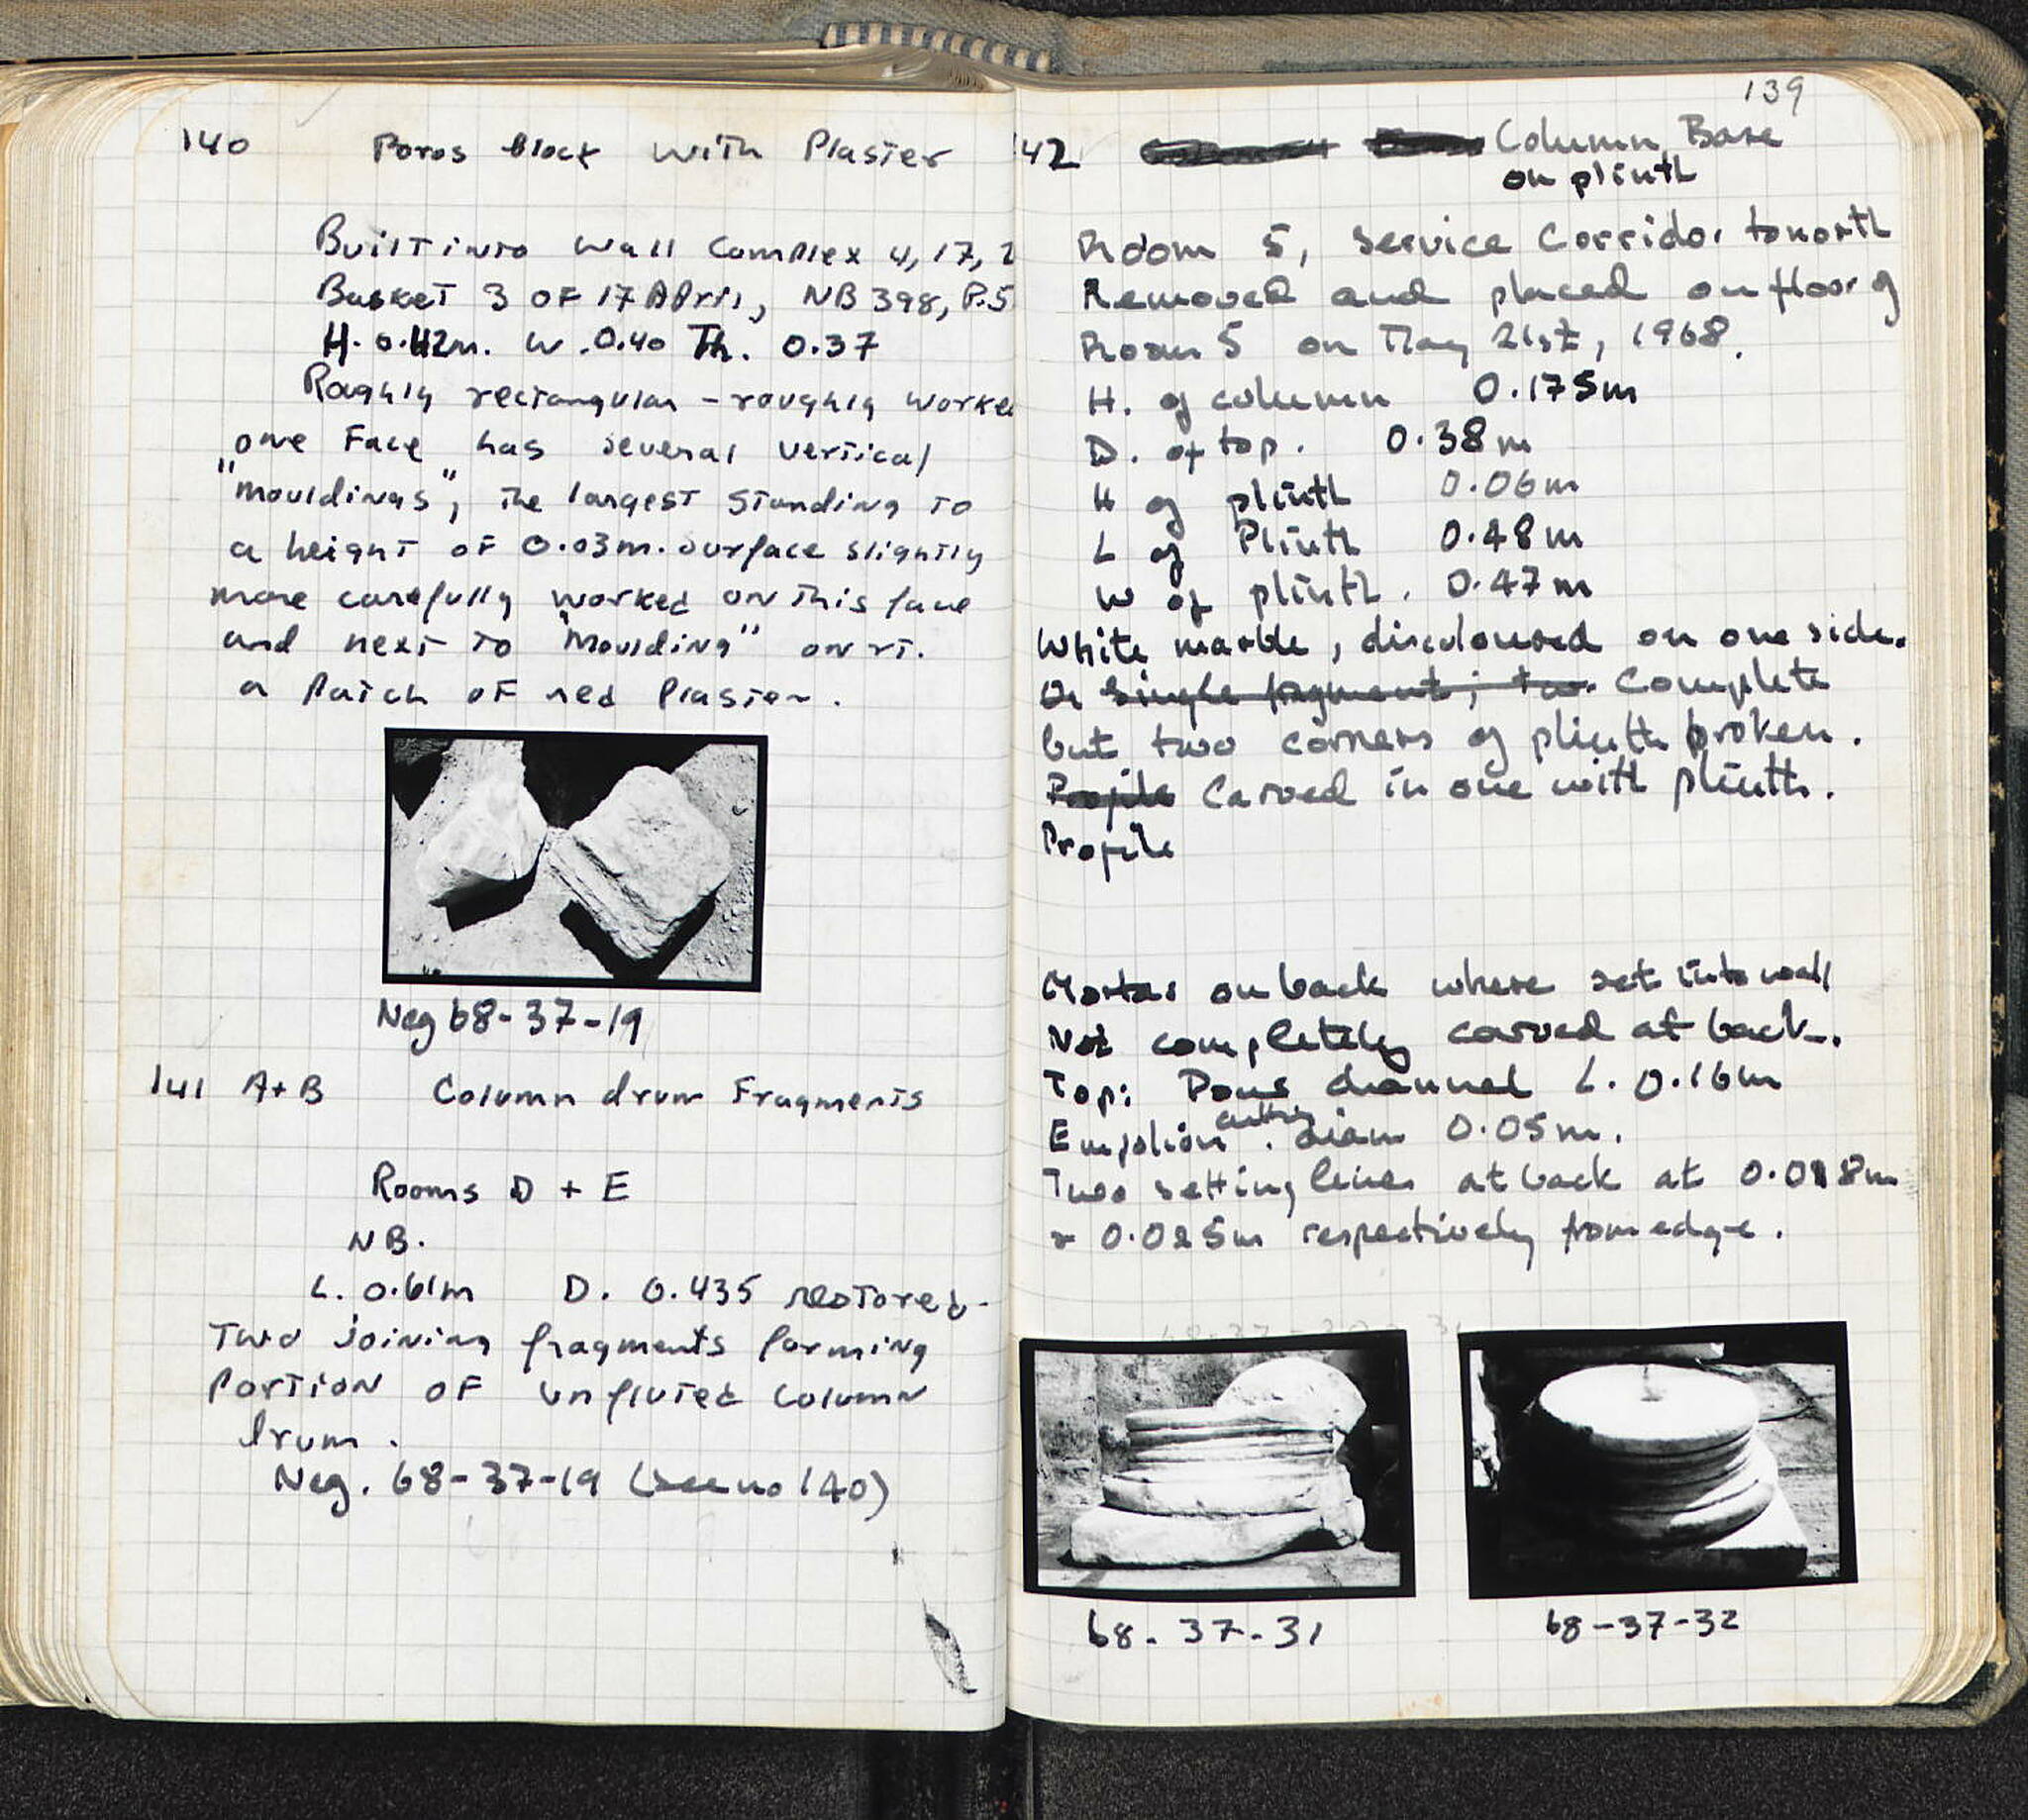 140 Poros block with Plaster
Built into Wall Complex 4, 17, 2
Basket 3 OF 17 April, NB 398, P.5
H. 0.42m. W. 0.40 Th. 0.37
Roughly rectangular - roughly worke
one Face has several vertical
"mouldings", the largest standing to
a height of 0.03m. surface slightly
more carefully worked on this face
and next to "moulding" on rt.
a patch of red Plaster.
Neg 68-37-19
141 A+B Column drum Fragments
Rooms D + E
NB.
L. 0.61m D. 0.435 restored.
Two joining fragments forming
portion of unfluted column
drum.
Neg. 68-37-19 (see no 140)
139
142 Column Base
on plinth
Room 5, Service Corridor to north
Removed and placed on floor of
Room 5 on May 21st, 1968.
H. of column 0.175m
D. of top. 0.38m
H of plinth 0.06m
L of Plinth 0.48m
W of plinth. 0.47m
White marble, discoloured on one side.
single fragment; two Complete
but two corners of plinth broken.
Profile Carved in one with plinth.
Profile
Mortar on back where set into wall
Not completely carved at back.
Top: Pour channel L. 0.16m
Empolion cutting. diam 0.05m.
Two setting lines at back at 0.018m
+ 0.025m respectively from edge.
68-37-31
68-37-32